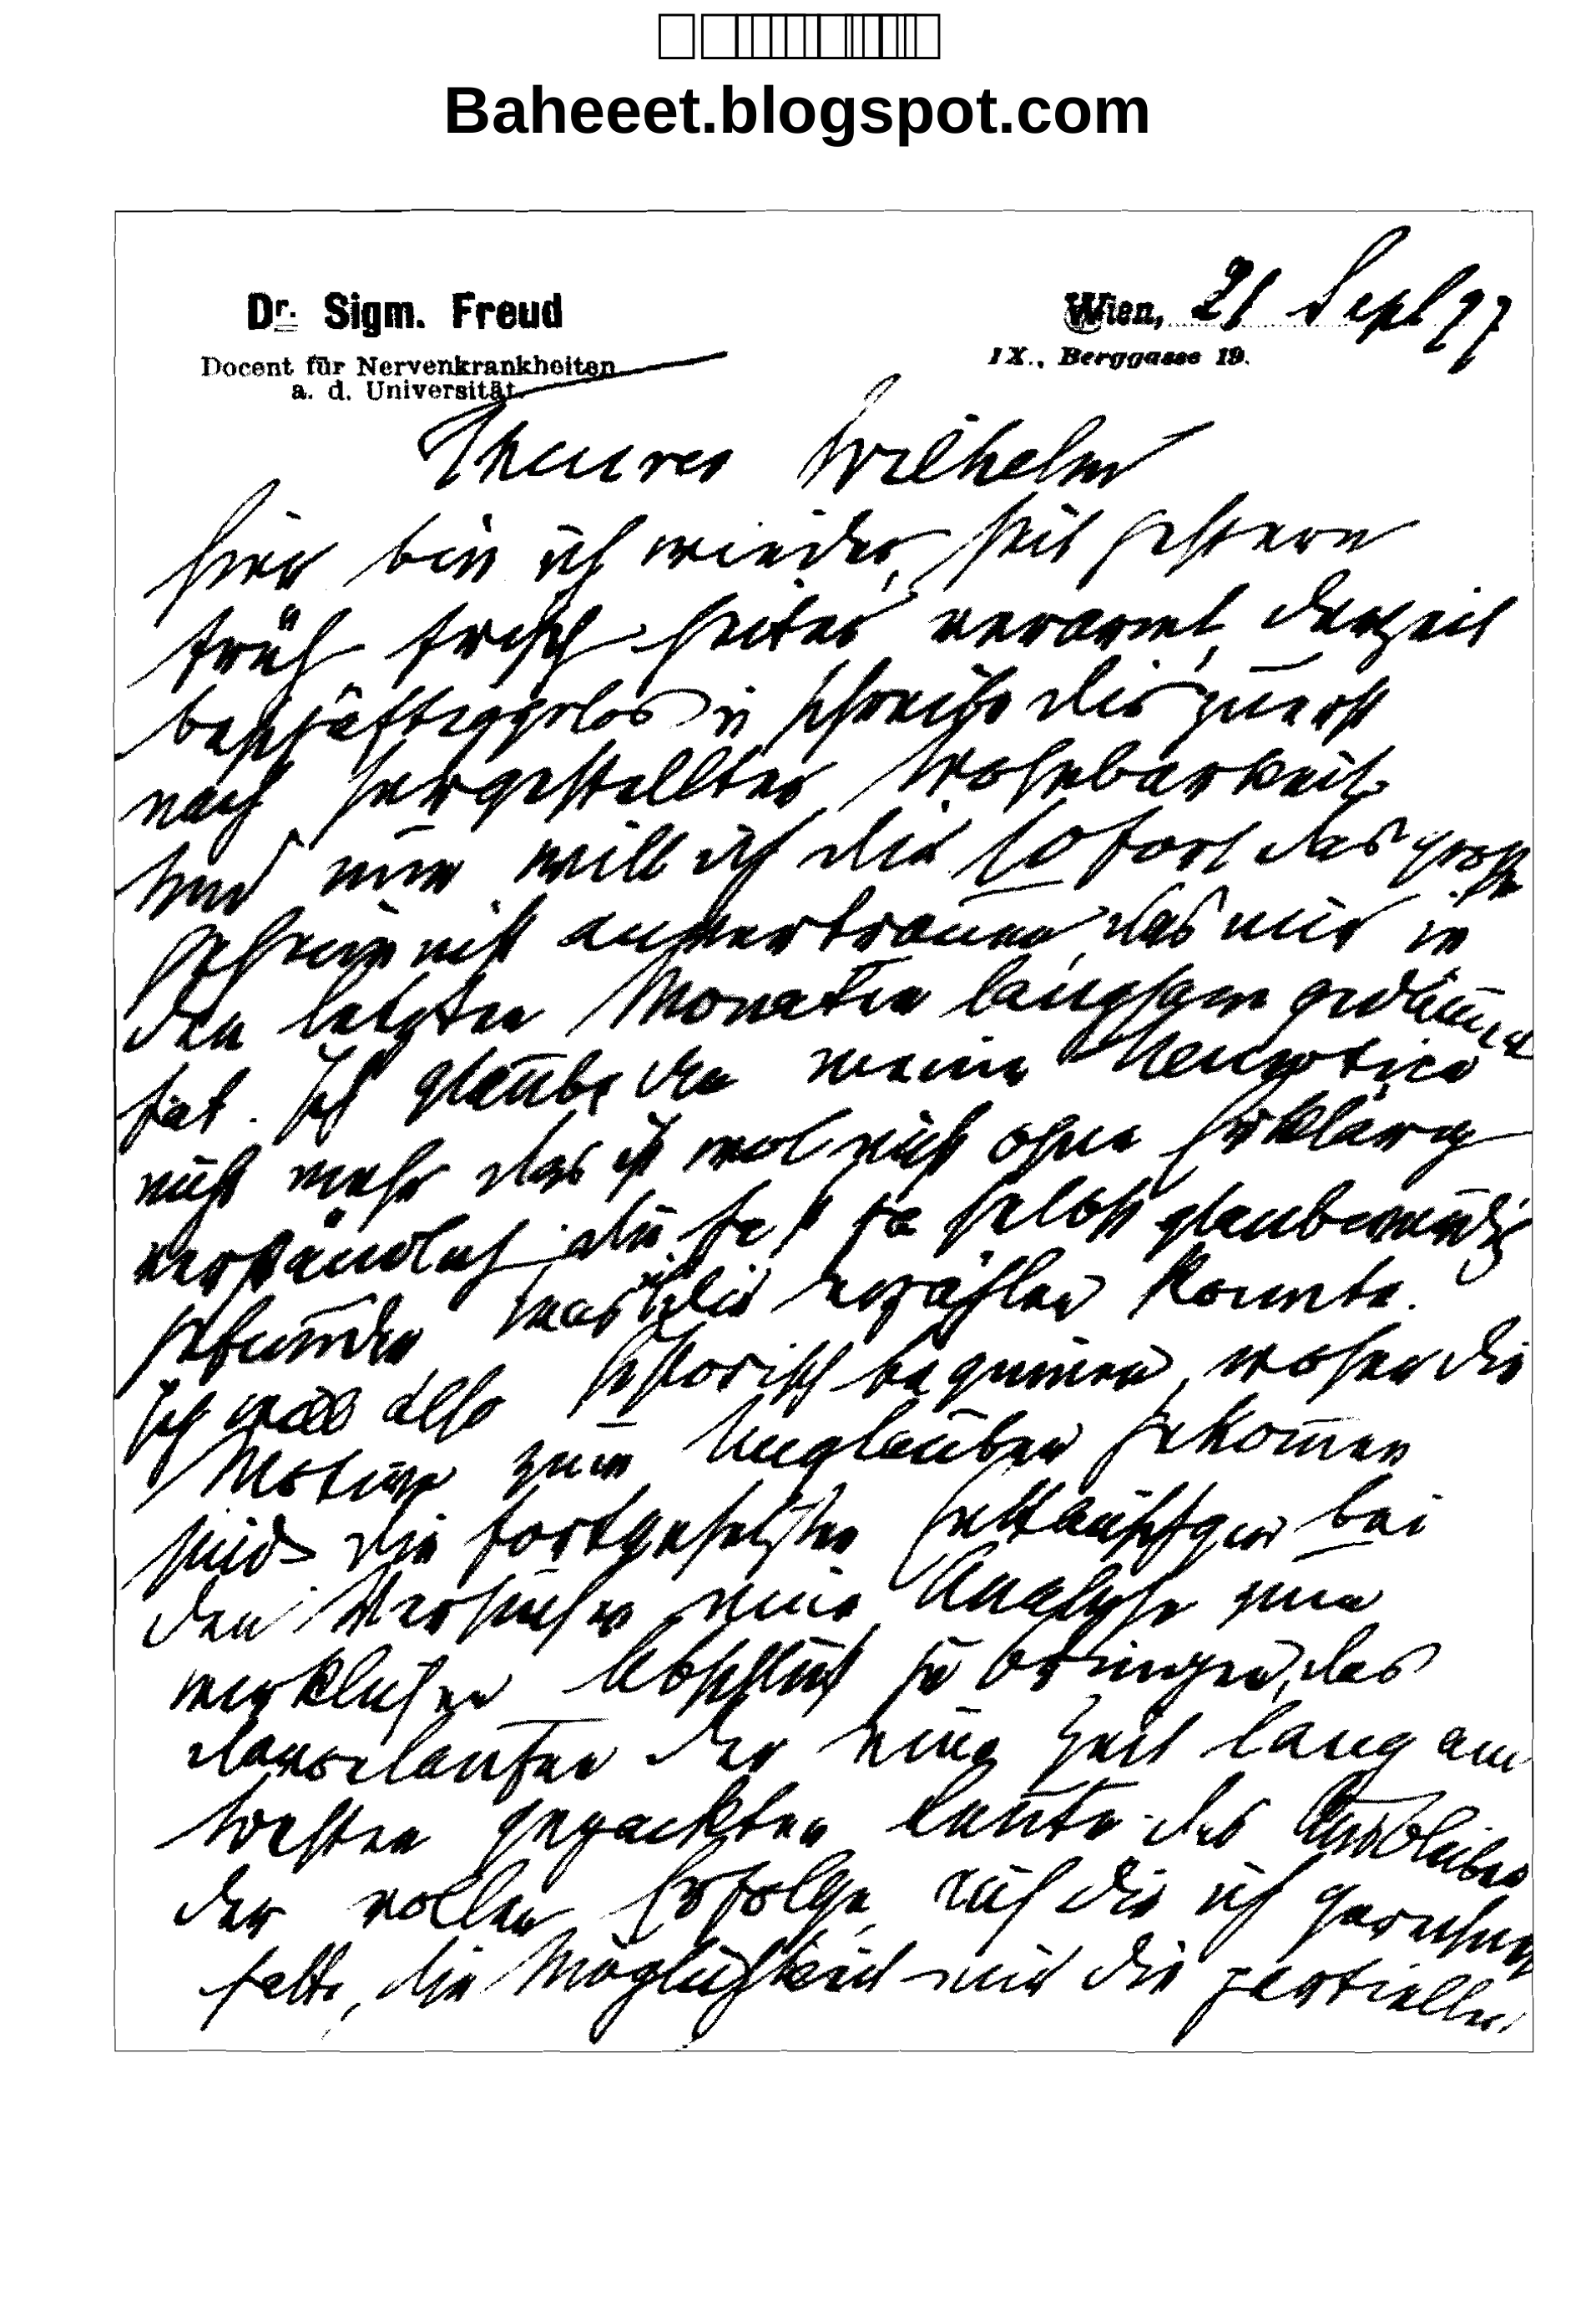 Baheeet.blogspot.com
Dr. Sigm. Freud
Docent für Nervenkrankheiten
a. d. Universität.
Wien, 21 Sept 97
IX., Berggasse 19.
Theurer Wilhelm
Hier bin ich wieder, seit gestern
früh frisch heiter verarmt, derzeit
beschäftigungslos u schreibe dir zuerst
nach hergestellter Wohnbarkeit.
Und nun will ich dir sofort das große
Geheimniß anvertrauen, das mir in
den letzten Monaten langsam gedämmert
hat. Ich glaube an meine Neurotica
nicht mehr das ist wol nicht ohne Erklärg
verständlich, du hast ja selbst glaubwürdig
gefunden was ich dir erzählen konnte.
Ich will also historisch beginnen, woher die
Motive zum Unglauben gekommen
sind die fortgesetzten Enttäuschgen bei
den Versuchen eine Analyse zum
wirklichen Abschluß zu bringen, das
davonlaufen der eine Zeit lang am
besten gepackten Leute das Ausbleiben
der vollen Erfolge, auf die ich gerechnet
hatte, die Möglichkeit mir die partiellen